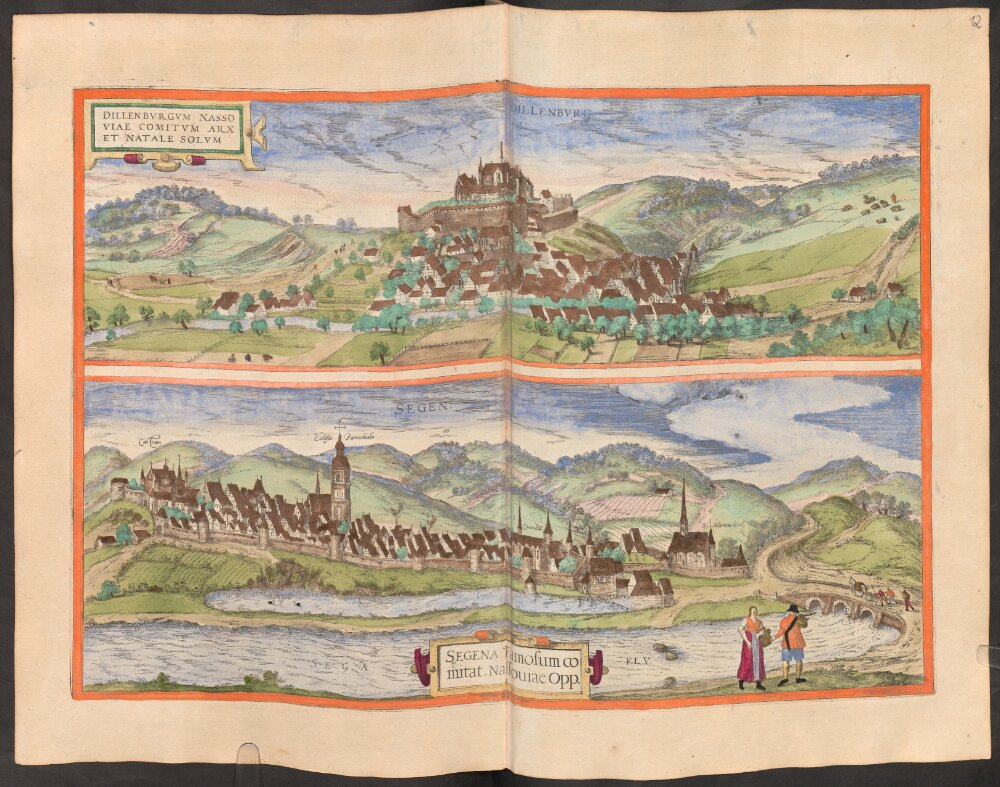 12
DILLENBVRGVM NASSO
VIAE COMITVM ARX
ET NATALE SOLVM
DILLENBVRG
SEGEN:
Ecclesia Parrochialis
SEGA FLV
SEGENA Famosum co
mitat. Nassouiae Opp.